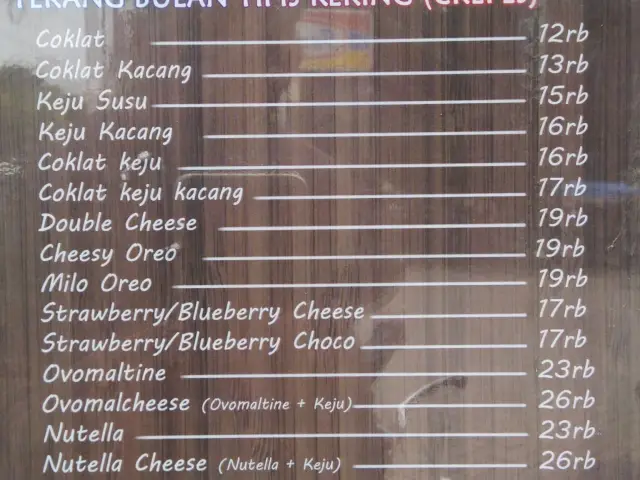 TERANG BULAN TIPIS KERING (CREPES)
Coklat 12rb
Coklat Kacang 13rb
Keju Susu 15rb
Keju Kacang 16rb
Coklat keju 16rb
Coklat keju kacang 17rb
Double Cheese 19rb
Cheesy Oreo 19rb
Milo Oreo 19rb
Strawberry/Blueberry Cheese 17rb
Strawberry/Blueberry Choco 17rb
Ovomaltine 23rb
Ovomalcheese (Ovomaltine + Keju) 26rb
Nutella 23rb
Nutella Cheese (Nutella + Keju) 26rb